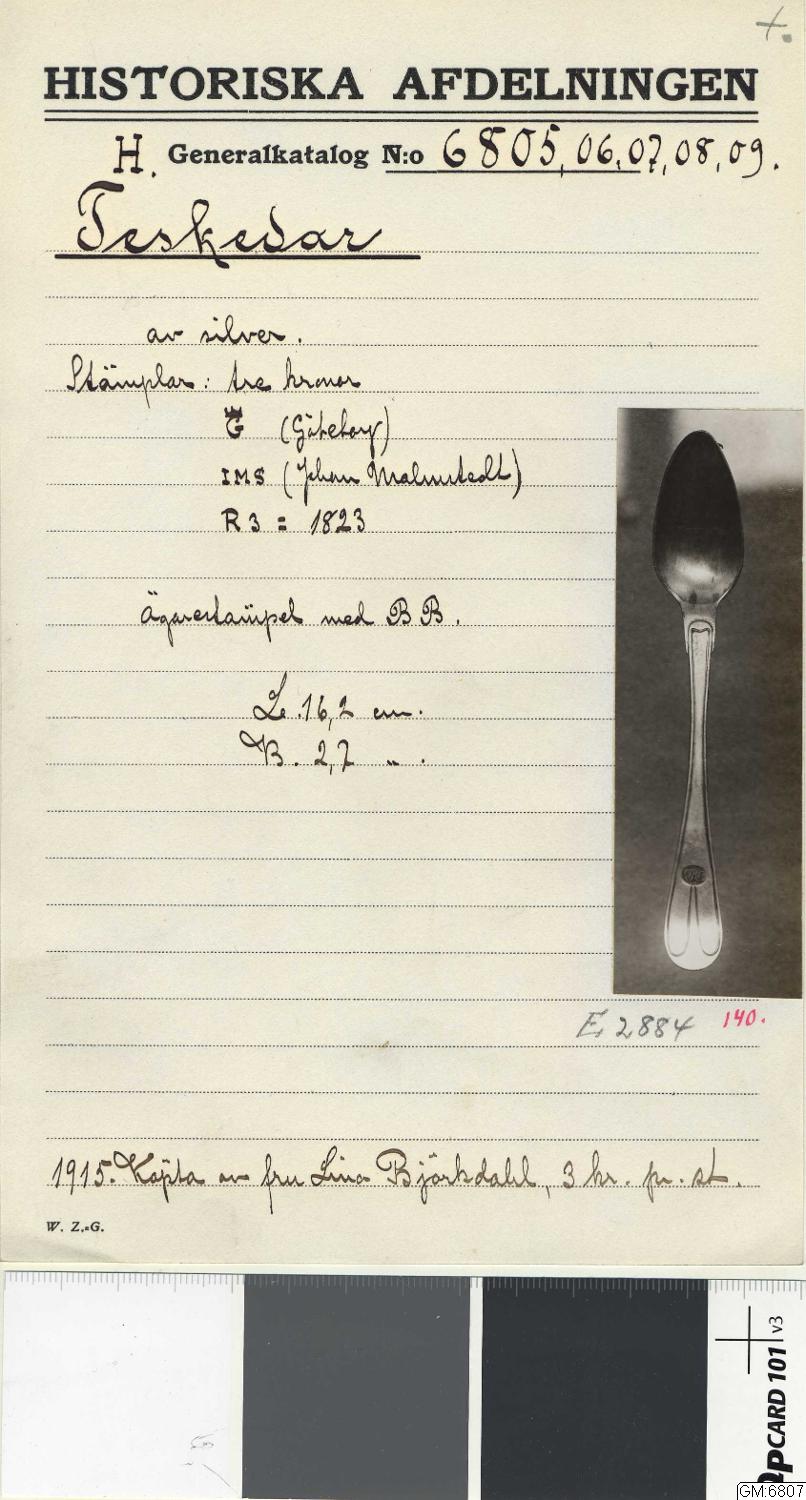 +.
HISTORISKA AFDELNINGEN
H. Generalkatalog N:o 6805,06,07,08,09.
Teskedar
av silver.
Stämplar: tre kronor
G (Göteborg)
IMS (Johan Malmstedt)
R3 = 1823
Ägarestämpel med BB.
L. 16,2 cm.
B. 2,7 " .
E 2884 140.
1915. Köpta av fru Lina Björkdahl, 3 kr. pr. st.
W. Z.-G.
QPCARD 101 v3
GM:6807